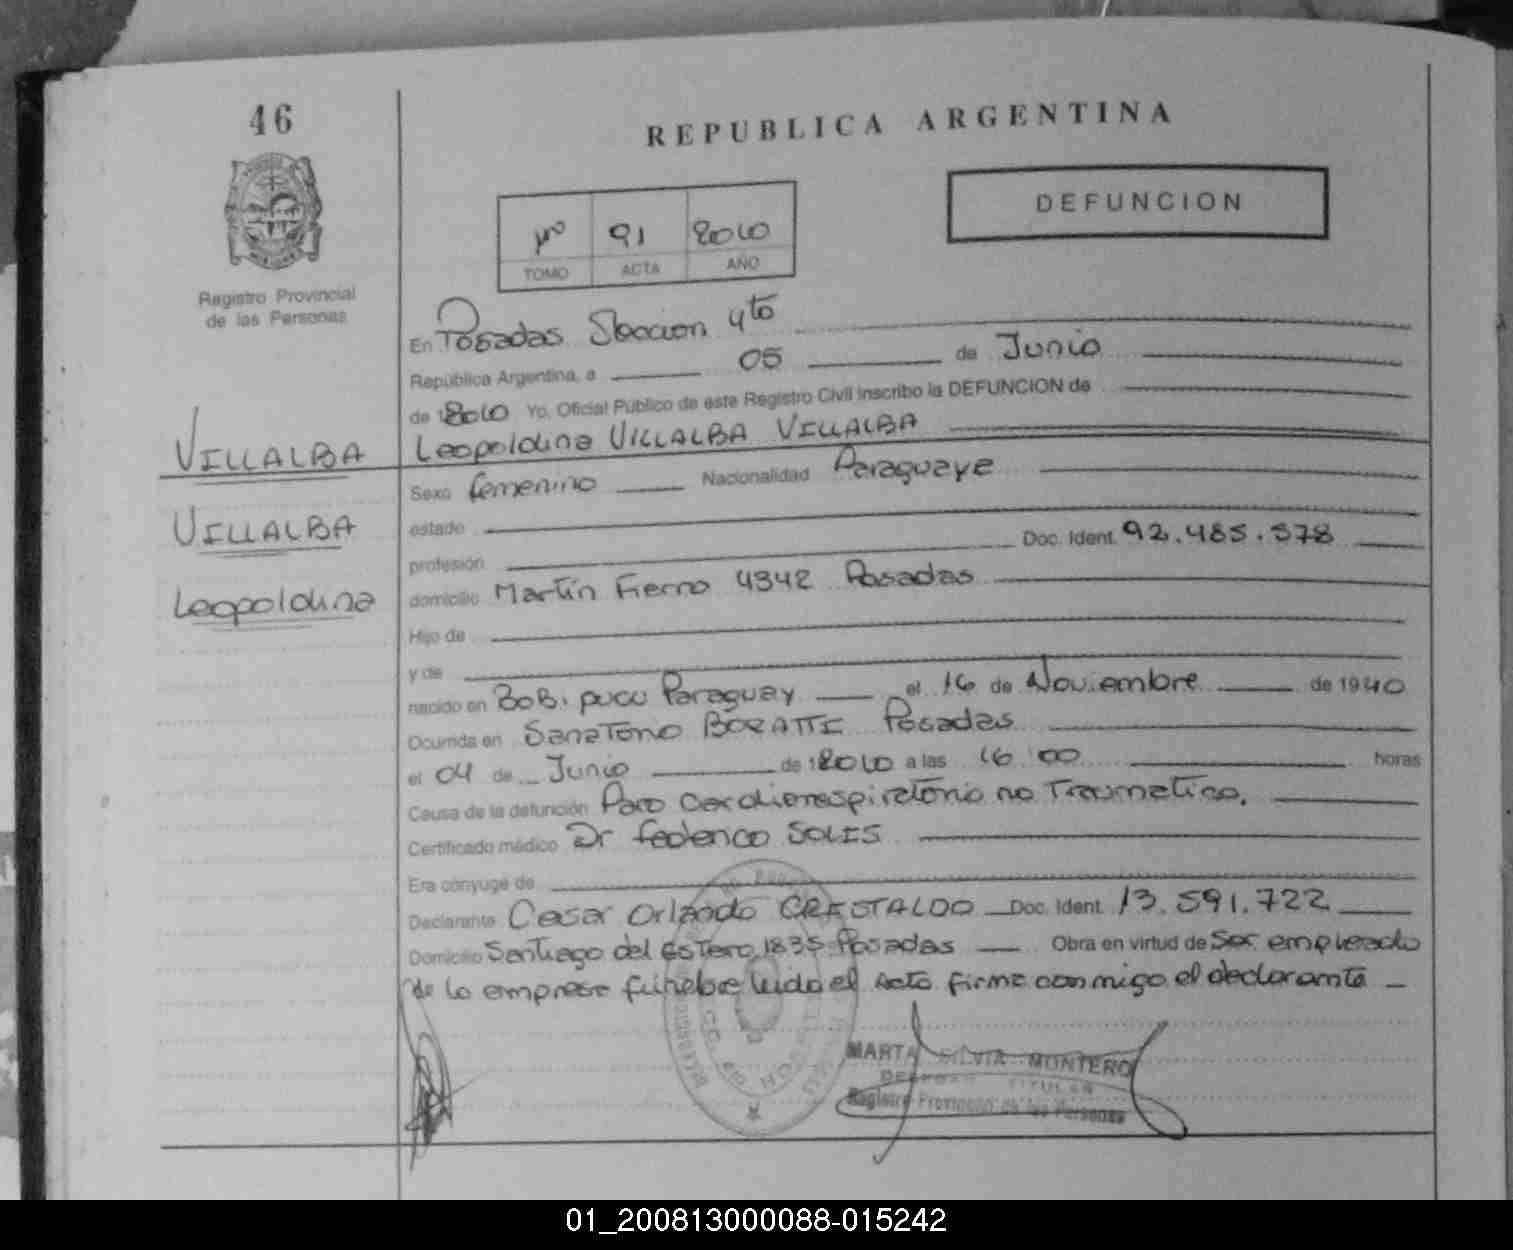 46
REPUBLICA ARGENTINA
DEFUNCION
91 2010
TOMO ACTA AÑO
Registro Provincial
de las Personas
En Posadas Seccion 4to
República Argentina, a 05 de Junio
de 2010 Yo, Oficial Público de este Registro Civil inscribo la DEFUNCION de
VILLALBA
Leopoldina VILLALBA VILLALBA
Sexo femenino Nacionalidad Paraguaya
VILLALBA
estado
profesión Doc. Ident. 92.485.578
Leopoldina
domicilio Martín Fierro 4342 Posadas
Hijo de
y de
nacido en Bobi pucu Paraguay el 16 de Noviembre de 1940
Ocurrida en Sanatorio BORATTI Posadas
el 04 de Junio de 2010 a las 16 00 horas
Causa de la defunción Paro Cardiorespiratorio no Traumatico.
Certificado médico Dr federico SOLIS
Era cónyuge de
Declarante Cesar Orlando CRESTALDO Doc. Ident. 13.591.722
Domicilio Santiago del Estero 1835 Posadas Obra en virtud de Ser empleado
de la empresa funebre leida el Acta firma conmigo el declarante
MARTA SILVIA MONTERO
TITULAR
Registro Provincial de las Personas
01_200813000088-015242